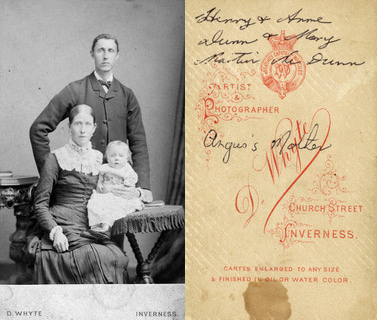 D. WHYTE INVERNESS.
Henry & Anne
Dunn & Mary
Martin Mc Dunn
ARTIST
&
PHOTOGRAPHER
Angus's Mother
D. Whyte
CHURCH STREET
INVERNESS.
CARTES ENLARGED TO ANY SIZE
& FINISHED IN OIL OR WATER COLOR